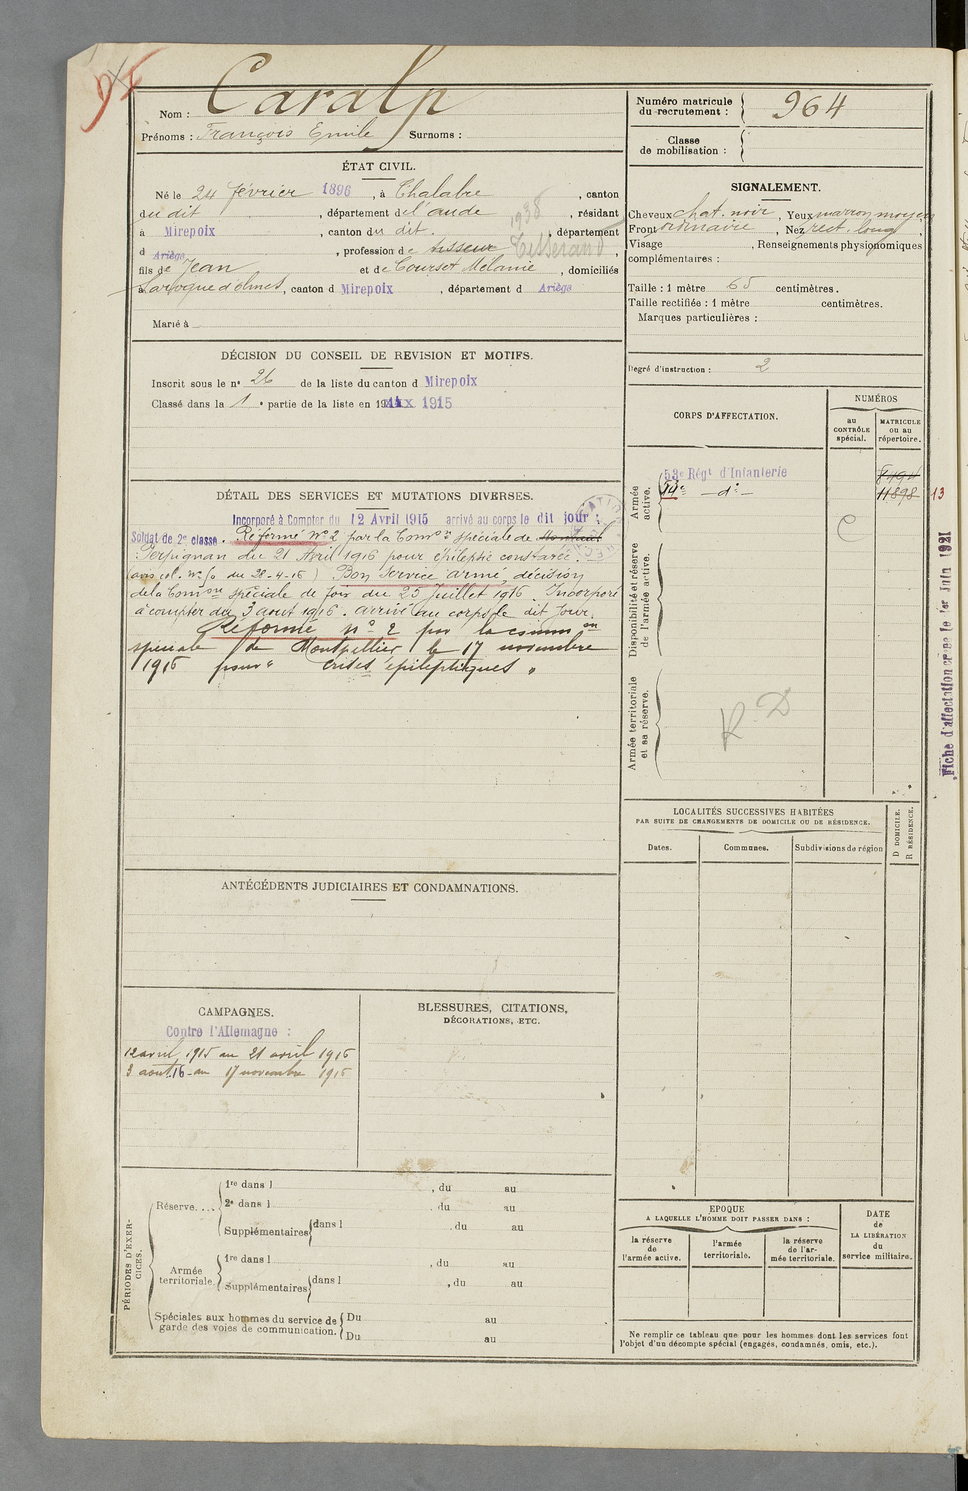 Nom : Caralp
Prénoms : François Emile Surnoms :
Numéro matricule du recrutement : 964
Classe de mobilisation :
ÉTAT CIVIL.
Né le 24 février 1896, à Chalabre, canton
du dit, département de l'aude, résidant
à Mirepoix, canton du dit, département
d Ariège, profession de tisseur Tisserand 1938
fils de Jean et de Courset Mélanie, domiciliés
à Laroque d'olmes, canton d Mirepoix, département d Ariège
Marié à
SIGNALEMENT.
Cheveux chat. noir, Yeux marron moyen
Front ordinaire, Nez rect. long,
Visage , Renseignements physionomiques
complémentaires :
Taille : 1 mètre 65 centimètres.
Taille rectifiée : 1 mètre centimètres.
Marques particulières :
Degré d'instruction : 2
DÉCISION DU CONSEIL DE REVISION ET MOTIFS.
Inscrit sous le n° 26 de la liste du canton d Mirepoix
Classé dans la 1e partie de la liste en 1915
CORPS D'AFFECTATION.
NUMÉROS
au CONTRÔLE spécial.
MATRICULE ou au répertoire.
Armée active.
53e Régt d'Infanterie
— d° —
11898
13
Disponibilité et réserve de l'armée active.
Armée territoriale et sa réserve.
R. D
Fiche d'affectation créée le 1er Juin 1921
DÉTAIL DES SERVICES ET MUTATIONS DIVERSES.
Incorporé à Compter du 12 Avril 1915 arrivé au corps le dit jour :
Soldat de 2e classe. Réformé N° 2 par la Comon spéciale de
Perpignan du 21 Avril 1916 pour épilepsie constatée.
(avis col. du 28-4-16) Bon service armé, décision
de la Comon spéciale de foix du 25 Juillet 1916. Incorporé
à compter du 3 aout 1916. arrivé au corps le dit jour.
Réformé n° 2 par la common
spéciale de Montpellier le 17 novembre
1916 pour " crises épileptiques "
LOCALITÉS SUCCESSIVES HABITÉES
PAR SUITE DE CHANGEMENTS DE DOMICILE OU DE RÉSIDENCE.
Dates. Communes. Subdivisions de région
D DOMICILE.
R RÉSIDENCE.
ANTÉCÉDENTS JUDICIAIRES ET CONDAMNATIONS.
CAMPAGNES.
Contre l'Allemagne :
12 avril 1915 au 21 avril 1916
3 aout 16 au 17 novembre 1916
BLESSURES, CITATIONS,
DÉCORATIONS, ETC.
PÉRIODES D'EXERCICES.
Réserve....
1re dans l , du au
2e dans l , du au
Supplémentaires dans l , du au
Armée territoriale.
1re dans l , du au
Supplémentaires dans l , du au
Spéciales aux hommes du service de garde des voies de communication.
Du au
Du au
EPOQUE
A LAQUELLE L'HOMME DOIT PASSER DANS :
la réserve de l'armée active.
l'armée territoriale.
la réserve de l'armée territoriale.
DATE de LA LIBÉRATION du service militaire.
Ne remplir ce tableau que pour les hommes dont les services font
l'objet d'un décompte spécial (engagés, condamnés, omis, etc.).